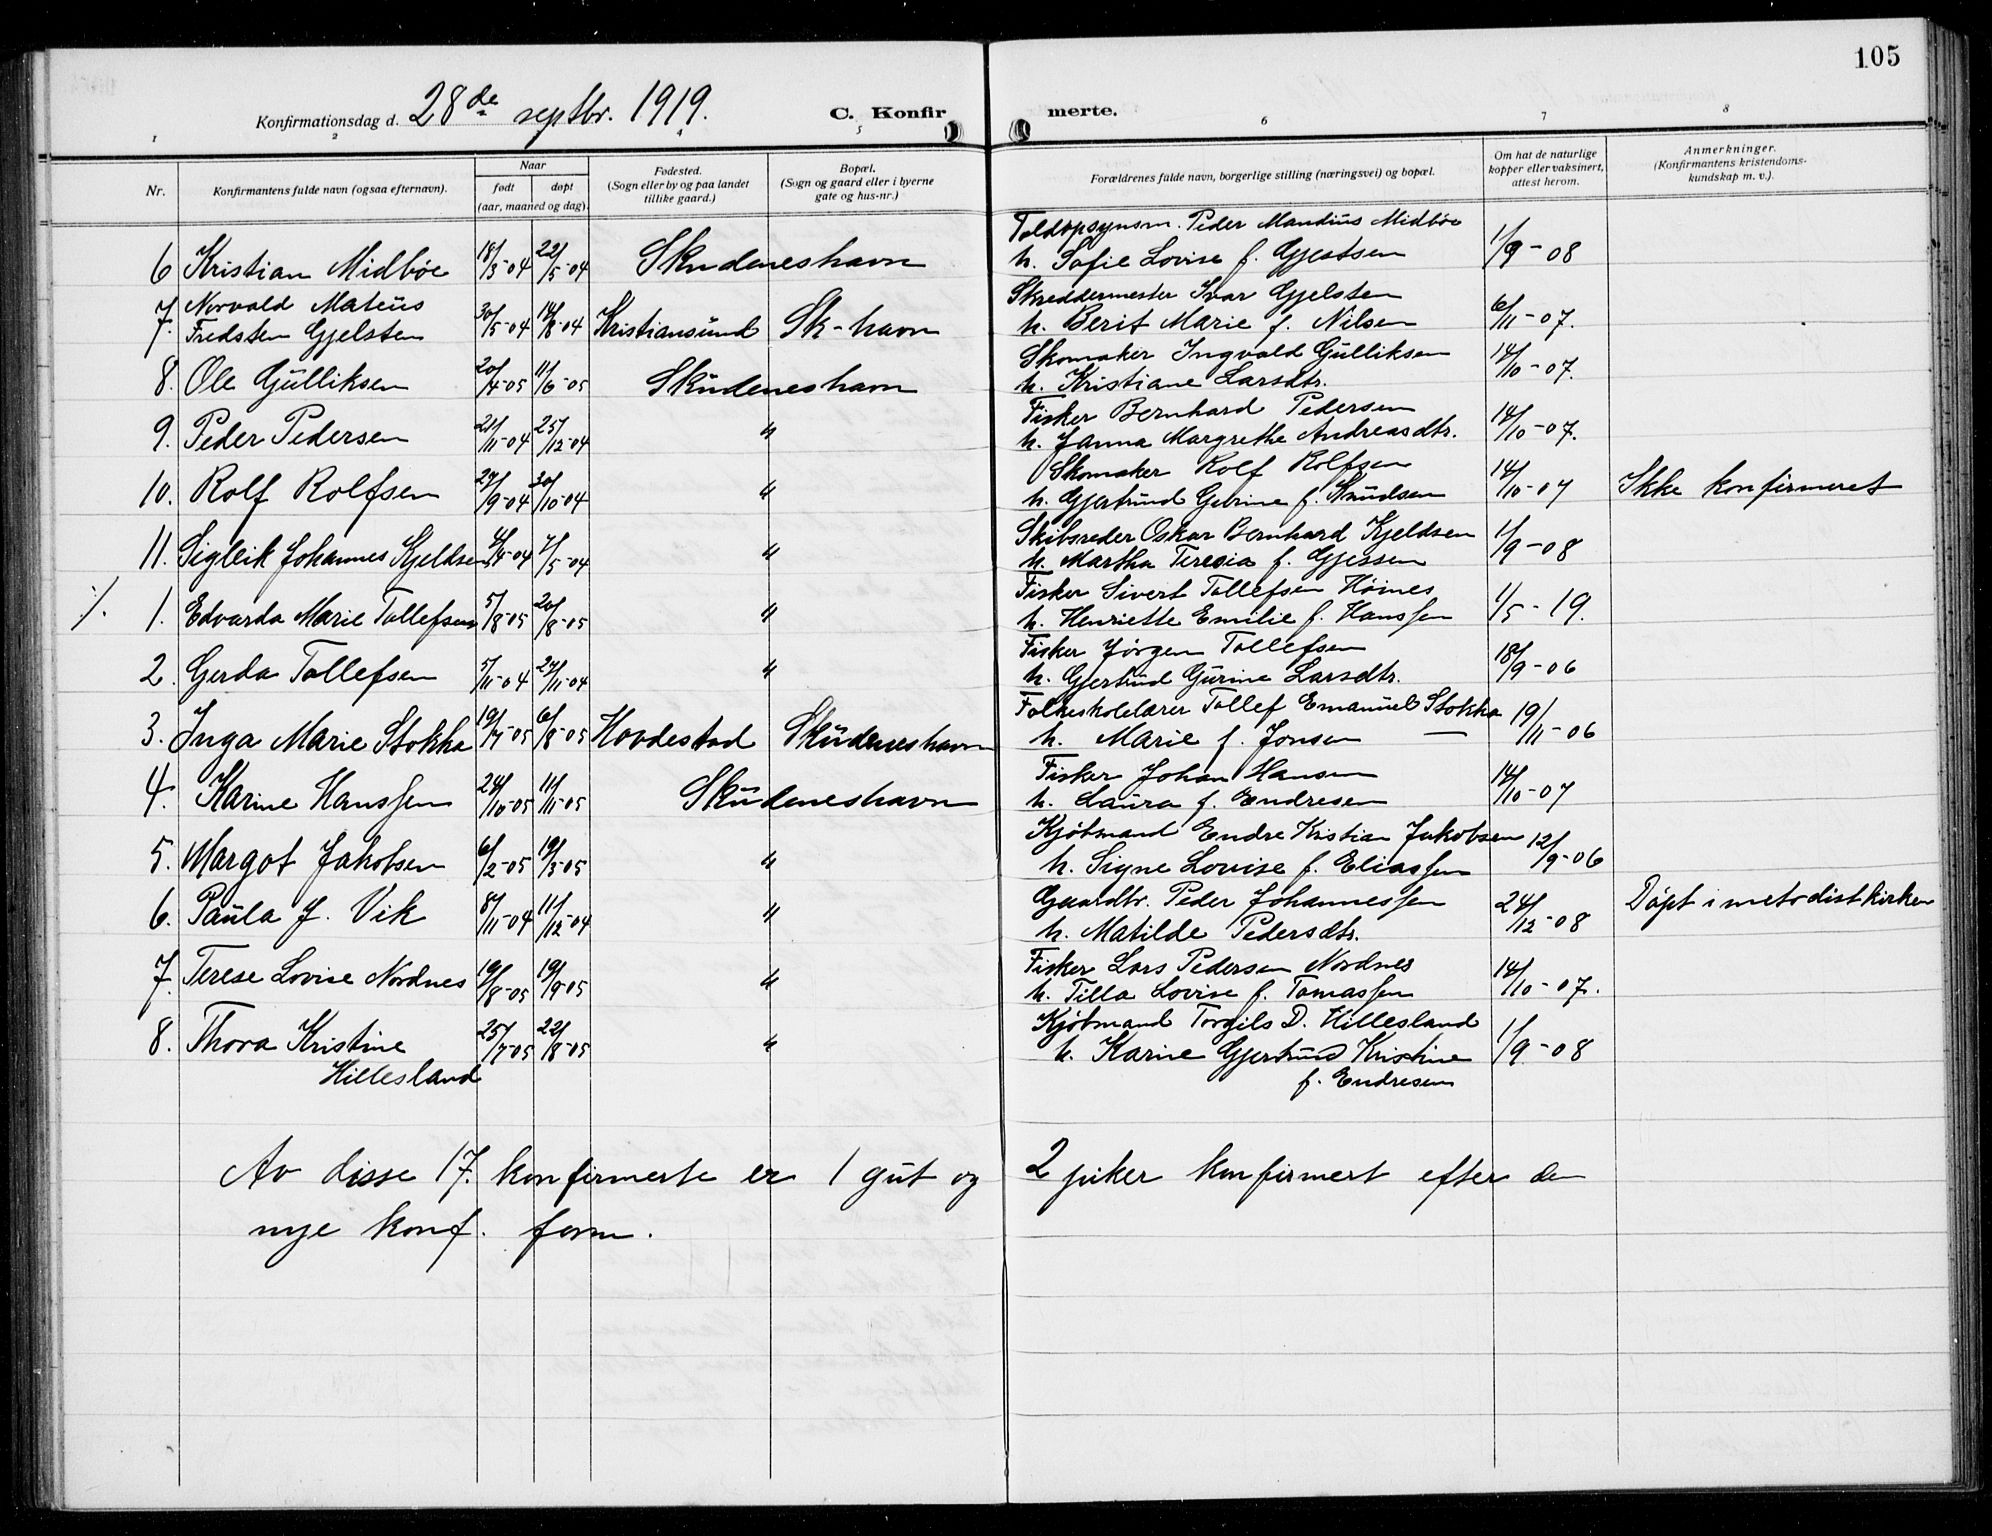 105
Konfirmationsdag d. 28de septbr. 1919.
C. Konfirmerte.
1 2 5 6 7 8
Nr.
Konfirmantens fulde navn (ogsaa efternavn).
Naar
født døpt
(aar, maaned og dag).
Fødested.
(Sogn eller by og paa landet
tillike gaard.)
Bopæl.
(Sogn og gaard eller i byerne
gate og hus-nr.)
Forældrenes fulde navn, borgerlige stilling (næringsvei) og bopæl.
Om hat de naturlige
kopper eller vaksinert,
attest herom.
Anmerkninger.
(Konfirmantens kristendoms-
kundskap m. v.).
Toldopsynsm. Peder Mandius Midbøe
6 Kristian Midbøe 18/3-04 22/5-04 Skudeneshavn h. Sofie Lovise f. Gjertsen 1/9-08
Norvald Mateus Skreddermester Ivar Gjelsten
7. Fredsten Gjelsten 30/5-04 14/8-04 Kristiansund Sk-havn h. Berit Marie f. Nilsen 6/11-07.
Skomaker Ingvald Gulliksen
8. Ole Gulliksen 20/4-05 11/6-05 Skudeneshavn h. Kristiane Larsdtr. 14/10-07.
Fisker Bernhard Pedersen
9. Peder Pedersen 21/11-04 25/12-04 " h. Janna Margrethe Andreasdtr. 14/10-07.
Skomaker Rolf Rolfsen
10. Rolf Rolfsen 27/9-04 30/10-04 " h. Gjertrud Gurine f. Knudsen 14/10-07 Ikke konfirmeret
Skibsreder Oskar Bernhard Kjeldsen
11. Sigleik Johannes Kjeldsen 4/4-04 7/5-04 " h. Martha Teresia f. Gjessen 1/9-08
Fisker Sivert Tollefsen Høines
1. Edvarda Marie Tollefsen 5/8-05 20/8-05 " h. Henriette Emilie f. Hanssen 1/5-19.
Fisker Jørgen Tollefsen
2. Gerda Tollefsen 5/11-04 27/11-04 " h. Gjertrud Gurine Larsdtr. 18/9-06
Folkeskolelærer Tollef Emanuel Stokka
3. Inga Marie Stokka 19/7-05 6/8-05 Hovdestad Skudeneshavn h. Marie f. Jonsen — 19/11-06
Fisker Johan Hansen
4. Karine Hanssen 24/10-05 11/11-05 Skudeneshavn h. Laura f. Endresen 14/10-07
Kjøbmand Endre Kristian Jakobsen
5. Margot Jakobsen 6/2-05 19/3-05 " h. Signe Lovise f. Eliassen 12/9-06
Gaardbr. Peder Johannessen
6. Paula J. Vik 8/11-04 11/12-04 " h. Matilde Pedersdtr. 24/12-08 Døpt i metodistkirken
Fisker Lars Pedersen Nordnes
7. Terese Lovise Nordnes 19/8-05 19/9-05 " h. Tilla Lovise f. Tomassen 14/10-07.
Kjøbmand Torgils D. Hillesland
8. Thora Kristine 25/7-05 22/8-05 " h. Karine Gjertrud Kristine 1/9-08
Hillesland f. Endresen
Av disse 17. konfirmerte er 1 gut og 2 piker konfirmert efter den
nye konf. form.